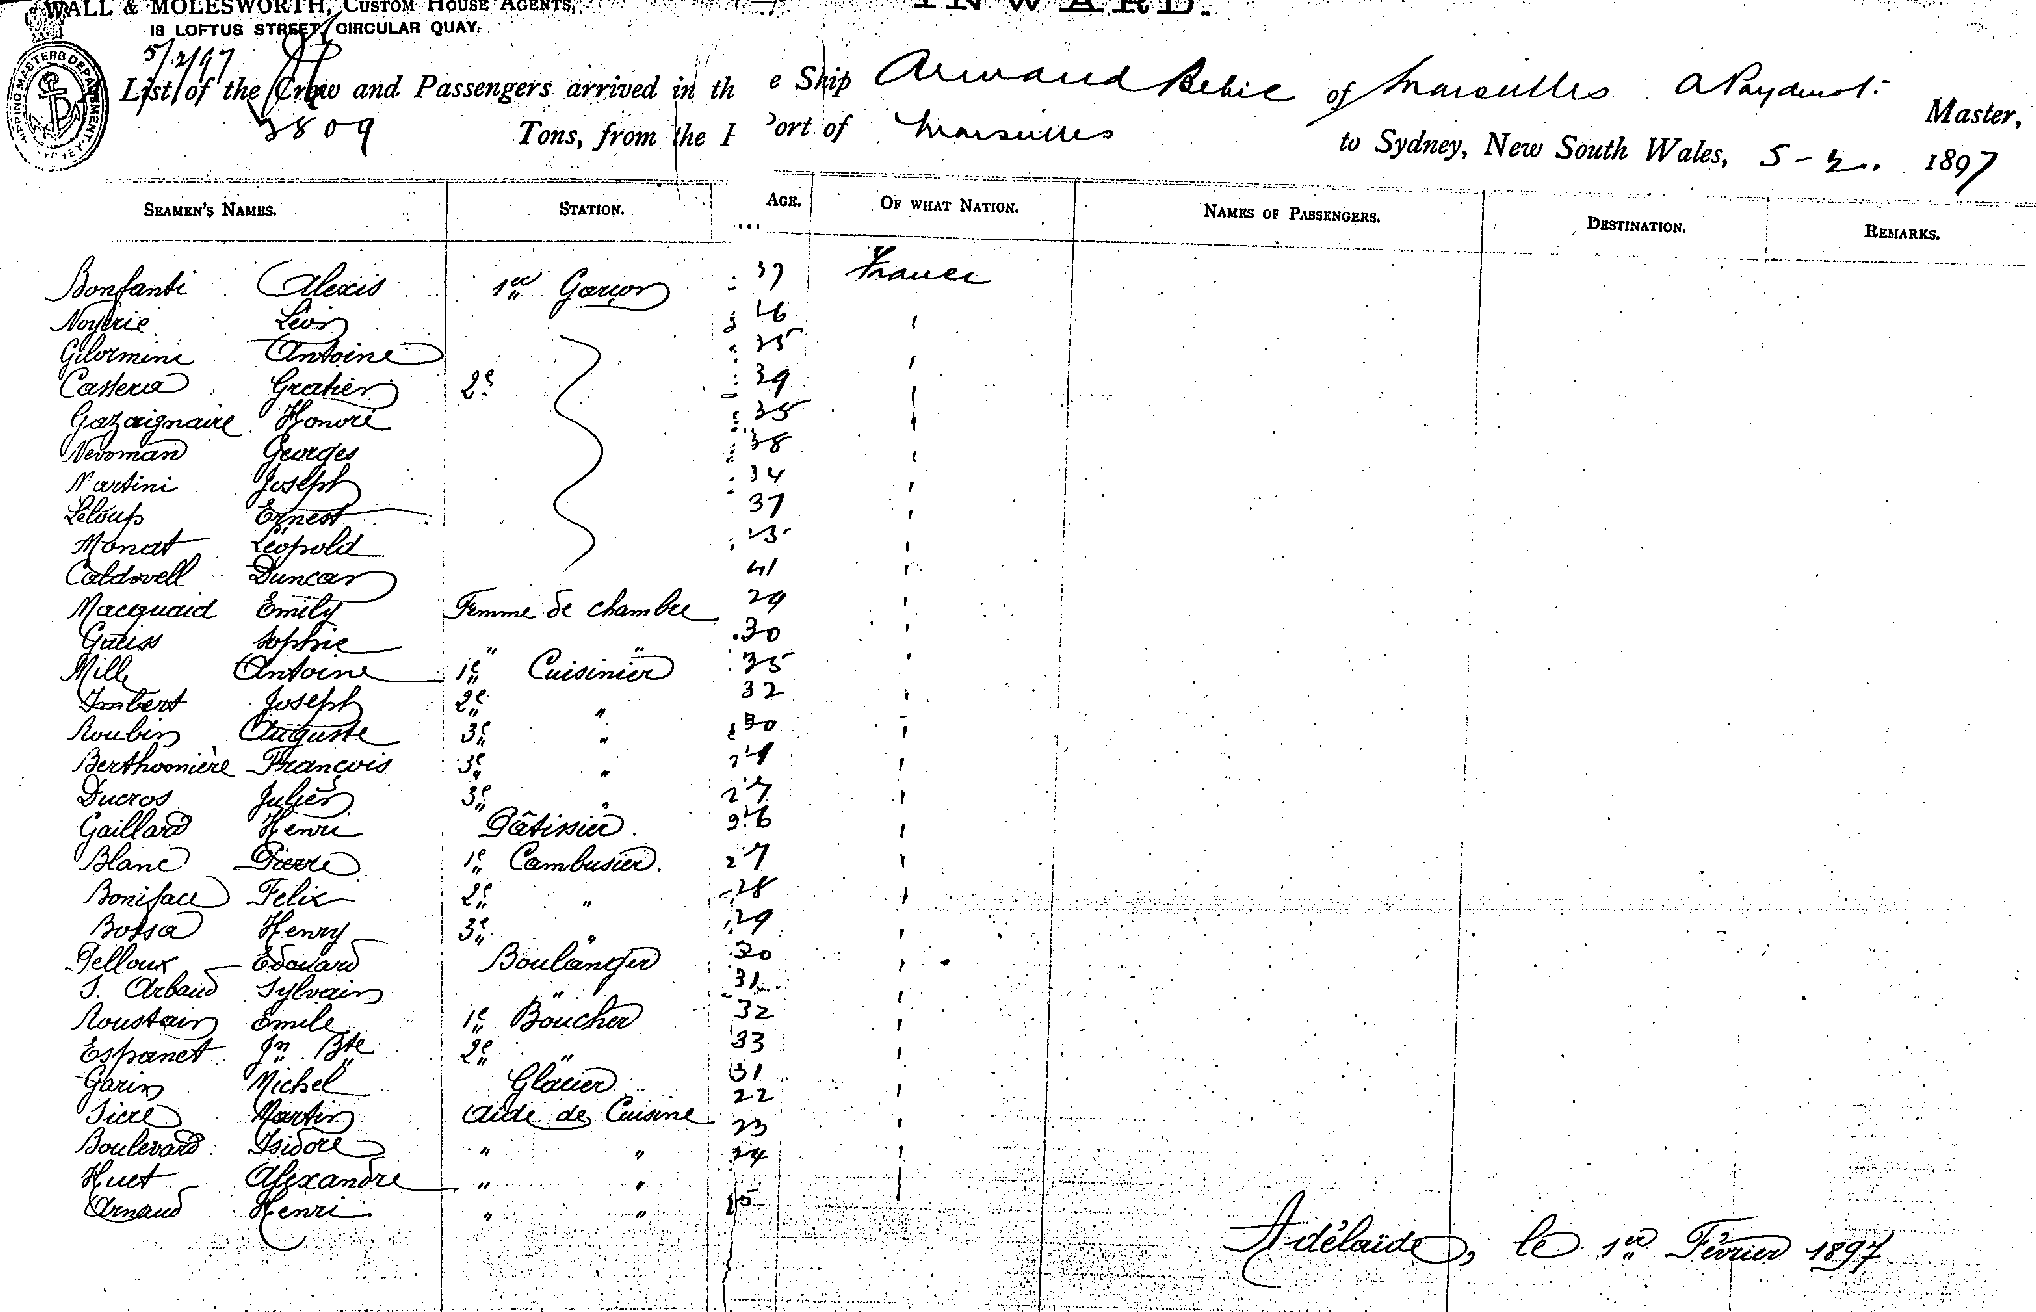 WALL & MOLESWORTH, CUSTOM HOUSE AGENTS,
18 LOFTUS STREET, CIRCULAR QUAY.
INWARD.
5/2/97
List of the Crew and Passengers arrived in the Ship Armand Behic of Marseilles Master,
3809 Tons, from the Port of Marseilles to Sydney, New South Wales, 5-2. 1897
SEAMEN'S NAMES. STATION. AGE. OF WHAT NATION. NAMES OF PASSENGERS. DESTINATION. REMARKS.
Bonfanti Alexis 1er Garçon 37 France
Noyerie Léon
Gilormini Antoine 35
Casseria Gratien 2e 39
Gazaignaire Honoré 35
Newman Georges 38
Martini Joseph 34
Leloup Ernest 37
Monat Léopold
Caldwell Duncan 41
Macquaid Emily Femme de chambre 29
Gueiss Sophie " " 30
Mille Antoine 1e Cuisinier 35
Imbert Joseph 2e " 32
Roubin Auguste 3e " 30
Berthomière François 3e "
Ducros Julien 3e " 27
Gaillard Henri Pâtissier. 26
Blanc Pierre 1e Cambusier. 27
Boniface Felix 2e " 28
Bossa Henry 3e " 29
Pelloux Edouard Boulanger 30
S. Arbaud Sylvain " 31
Roustain Emile 1e Boucher 32
Espanet Jn Bte 2e " 33
Garin Michel Glacier 31
Sicre Martin Aide de Cuisine 22
Boulevard Isidore " " 23
Huet Alexandre " " 24
Arnaud Henri " "
Adélaïde, le 1er Février 1897